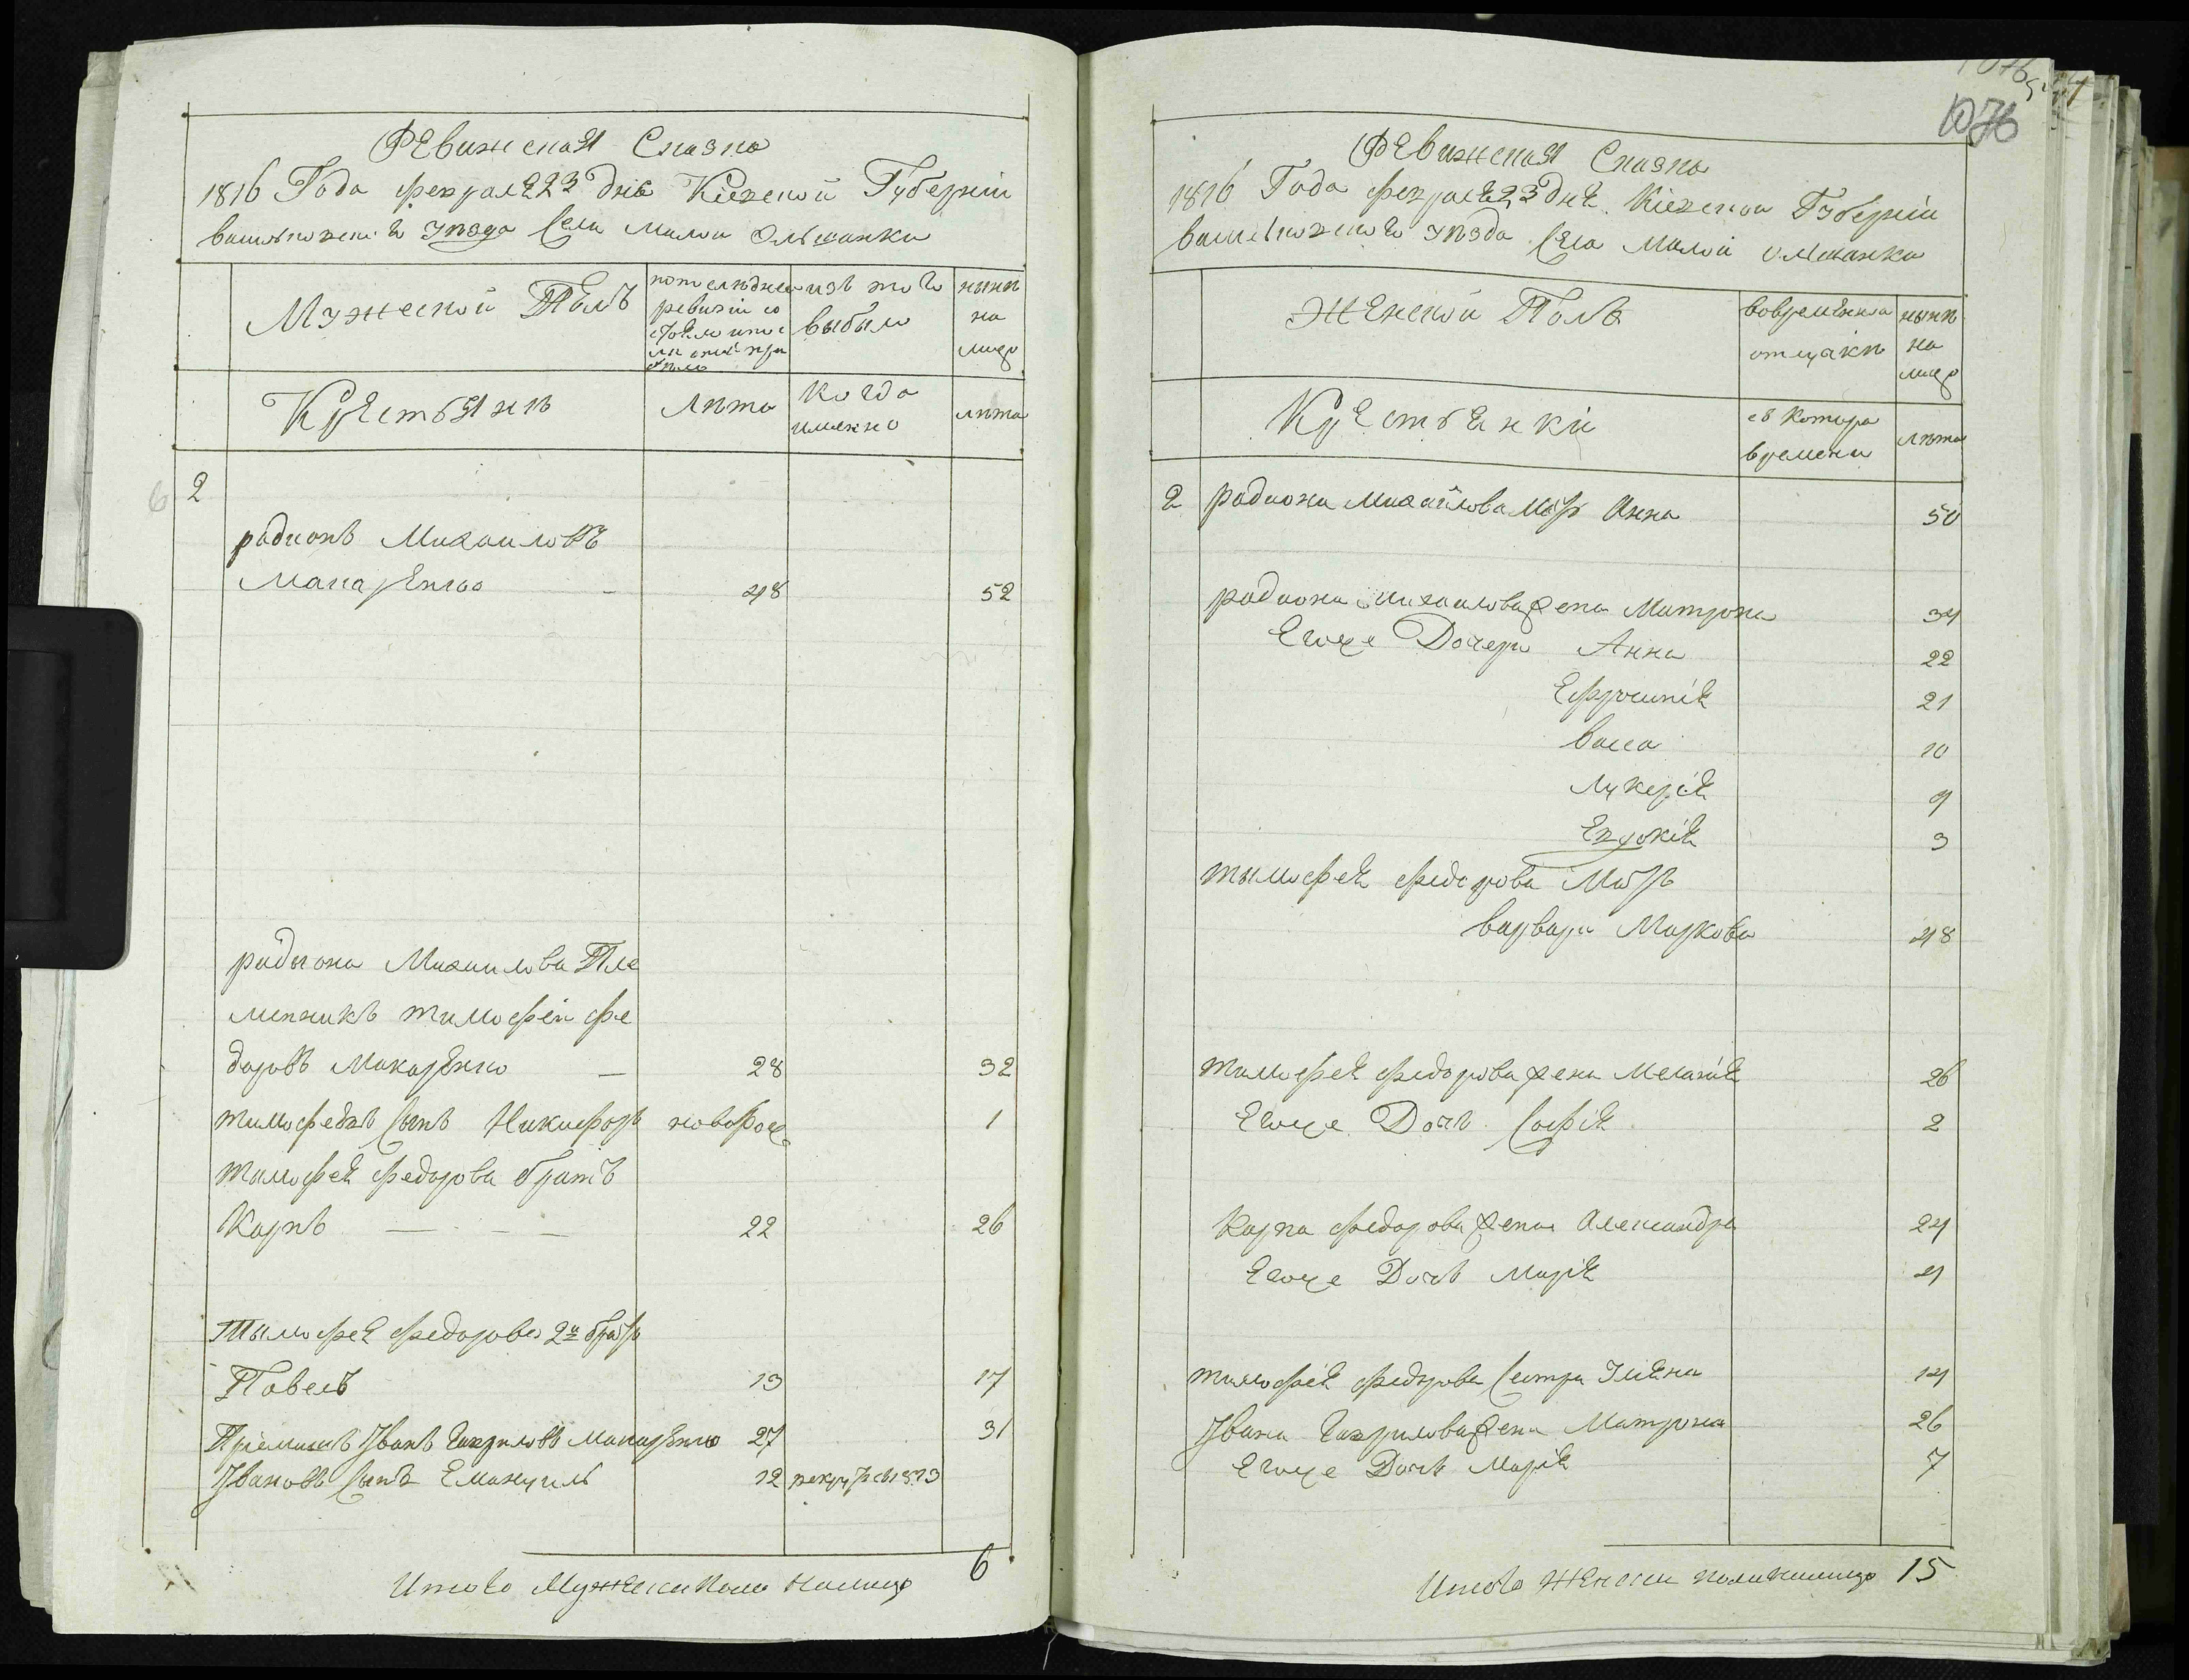 Ревижская Сказка
1816 Года февраля 23 дня Киевской Губернии
васильковского уезда Села малой Ольшанки
Мужеской Полъ
по последней
ревизии со
стояло и пос
ле оной при
было
изъ того
выбыло
нынѣ
на
лицо
Крестьянѣ
Лѣта
Когда
именно
лѣта
2
радионъ Михаиловъ
Макаренко - 48 52
радиона Михаилова Пле
менникъ тимофей фе
доровъ Макаренко — 28 32
тимофеявъ Сынъ Никифоръ новорож 1
тимофея федорова братъ
Карпъ — - — - 22 26
Тымофея федорова 2й братъ
Павелъ 13 17
Пріемышъ Иванъ Гавриловъ Макаренко 27 31
Ивановъ Сынъ Емануилъ 12 рекрут въ 1813
Итого Мужеска пола налицо 6
1076
Ревижская Сказка
1816 Года февраля 23 дня Киевской Губернии
васильковского уезда Села Малой ольшанки
Женской Полъ
во временной
отлучкѣ
нынѣ
на
лицо
Крестьянки
съ Котора
времени
лѣта
2 радиона Михайлова Мать Анна 50
радиона михаилова жена Матрона 34
Егоже Дочери Анна 22
Ефросинія 21
васса 10
Лукерія 9
Евдокія 3
тымофея федорова Мать
варвара Маркова 48
тимофея федорова жена Меланія 26
Егоже Дочь Софія 2
Карпа федорова жена Александра 24
Егоже Дочь Марія 4
тимофея федорова Сестра Уліяна 14
Ивана Гаврилова жена Матрона 26
Егоже Дочь Марія 7
Итого Женска пола налицо 15